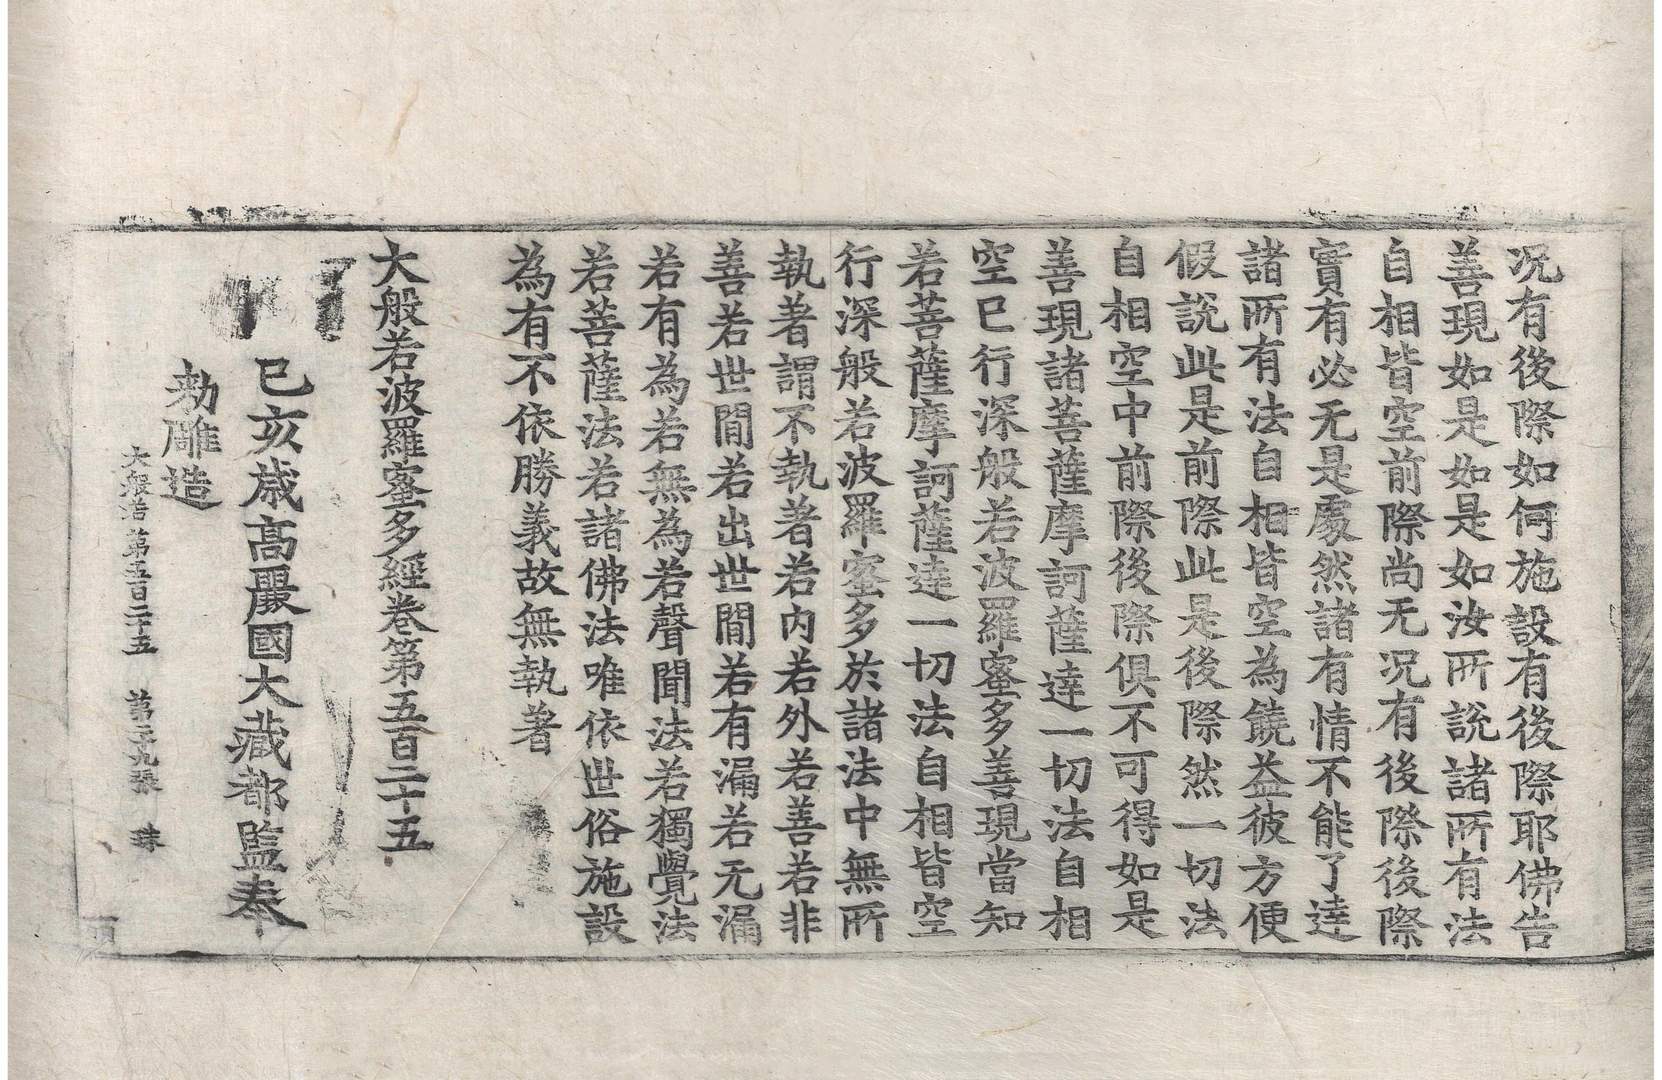 况有後際如何施設有後際耶佛告
善現如是如是如汝所說諸所有法
自相皆空前際尚无况有後際後際
實有必无是處然諸有情不能了達
諸所有法自相皆空為饒益彼方便
假說此是前際此是後際然一切法
自相空中前際後際俱不可得如是
善現諸菩薩摩訶薩達一切法自相
空已行深般若波羅蜜多善現當知
若菩薩摩訶薩達一切法自相皆空
行深般若波羅蜜多於諸法中無所
執著謂不執著若內若外若善若非
善若世間若出世間若有漏若无漏
若有為若無為若聲聞法若獨覺法
若菩薩法若諸佛法唯依世俗施設
為有不依勝義故無執著
大般若波羅蜜多經卷第五百二十五
己亥歲高麗國大藏都監奉
勑雕造
大般若第五百二十五 第二九張 珠